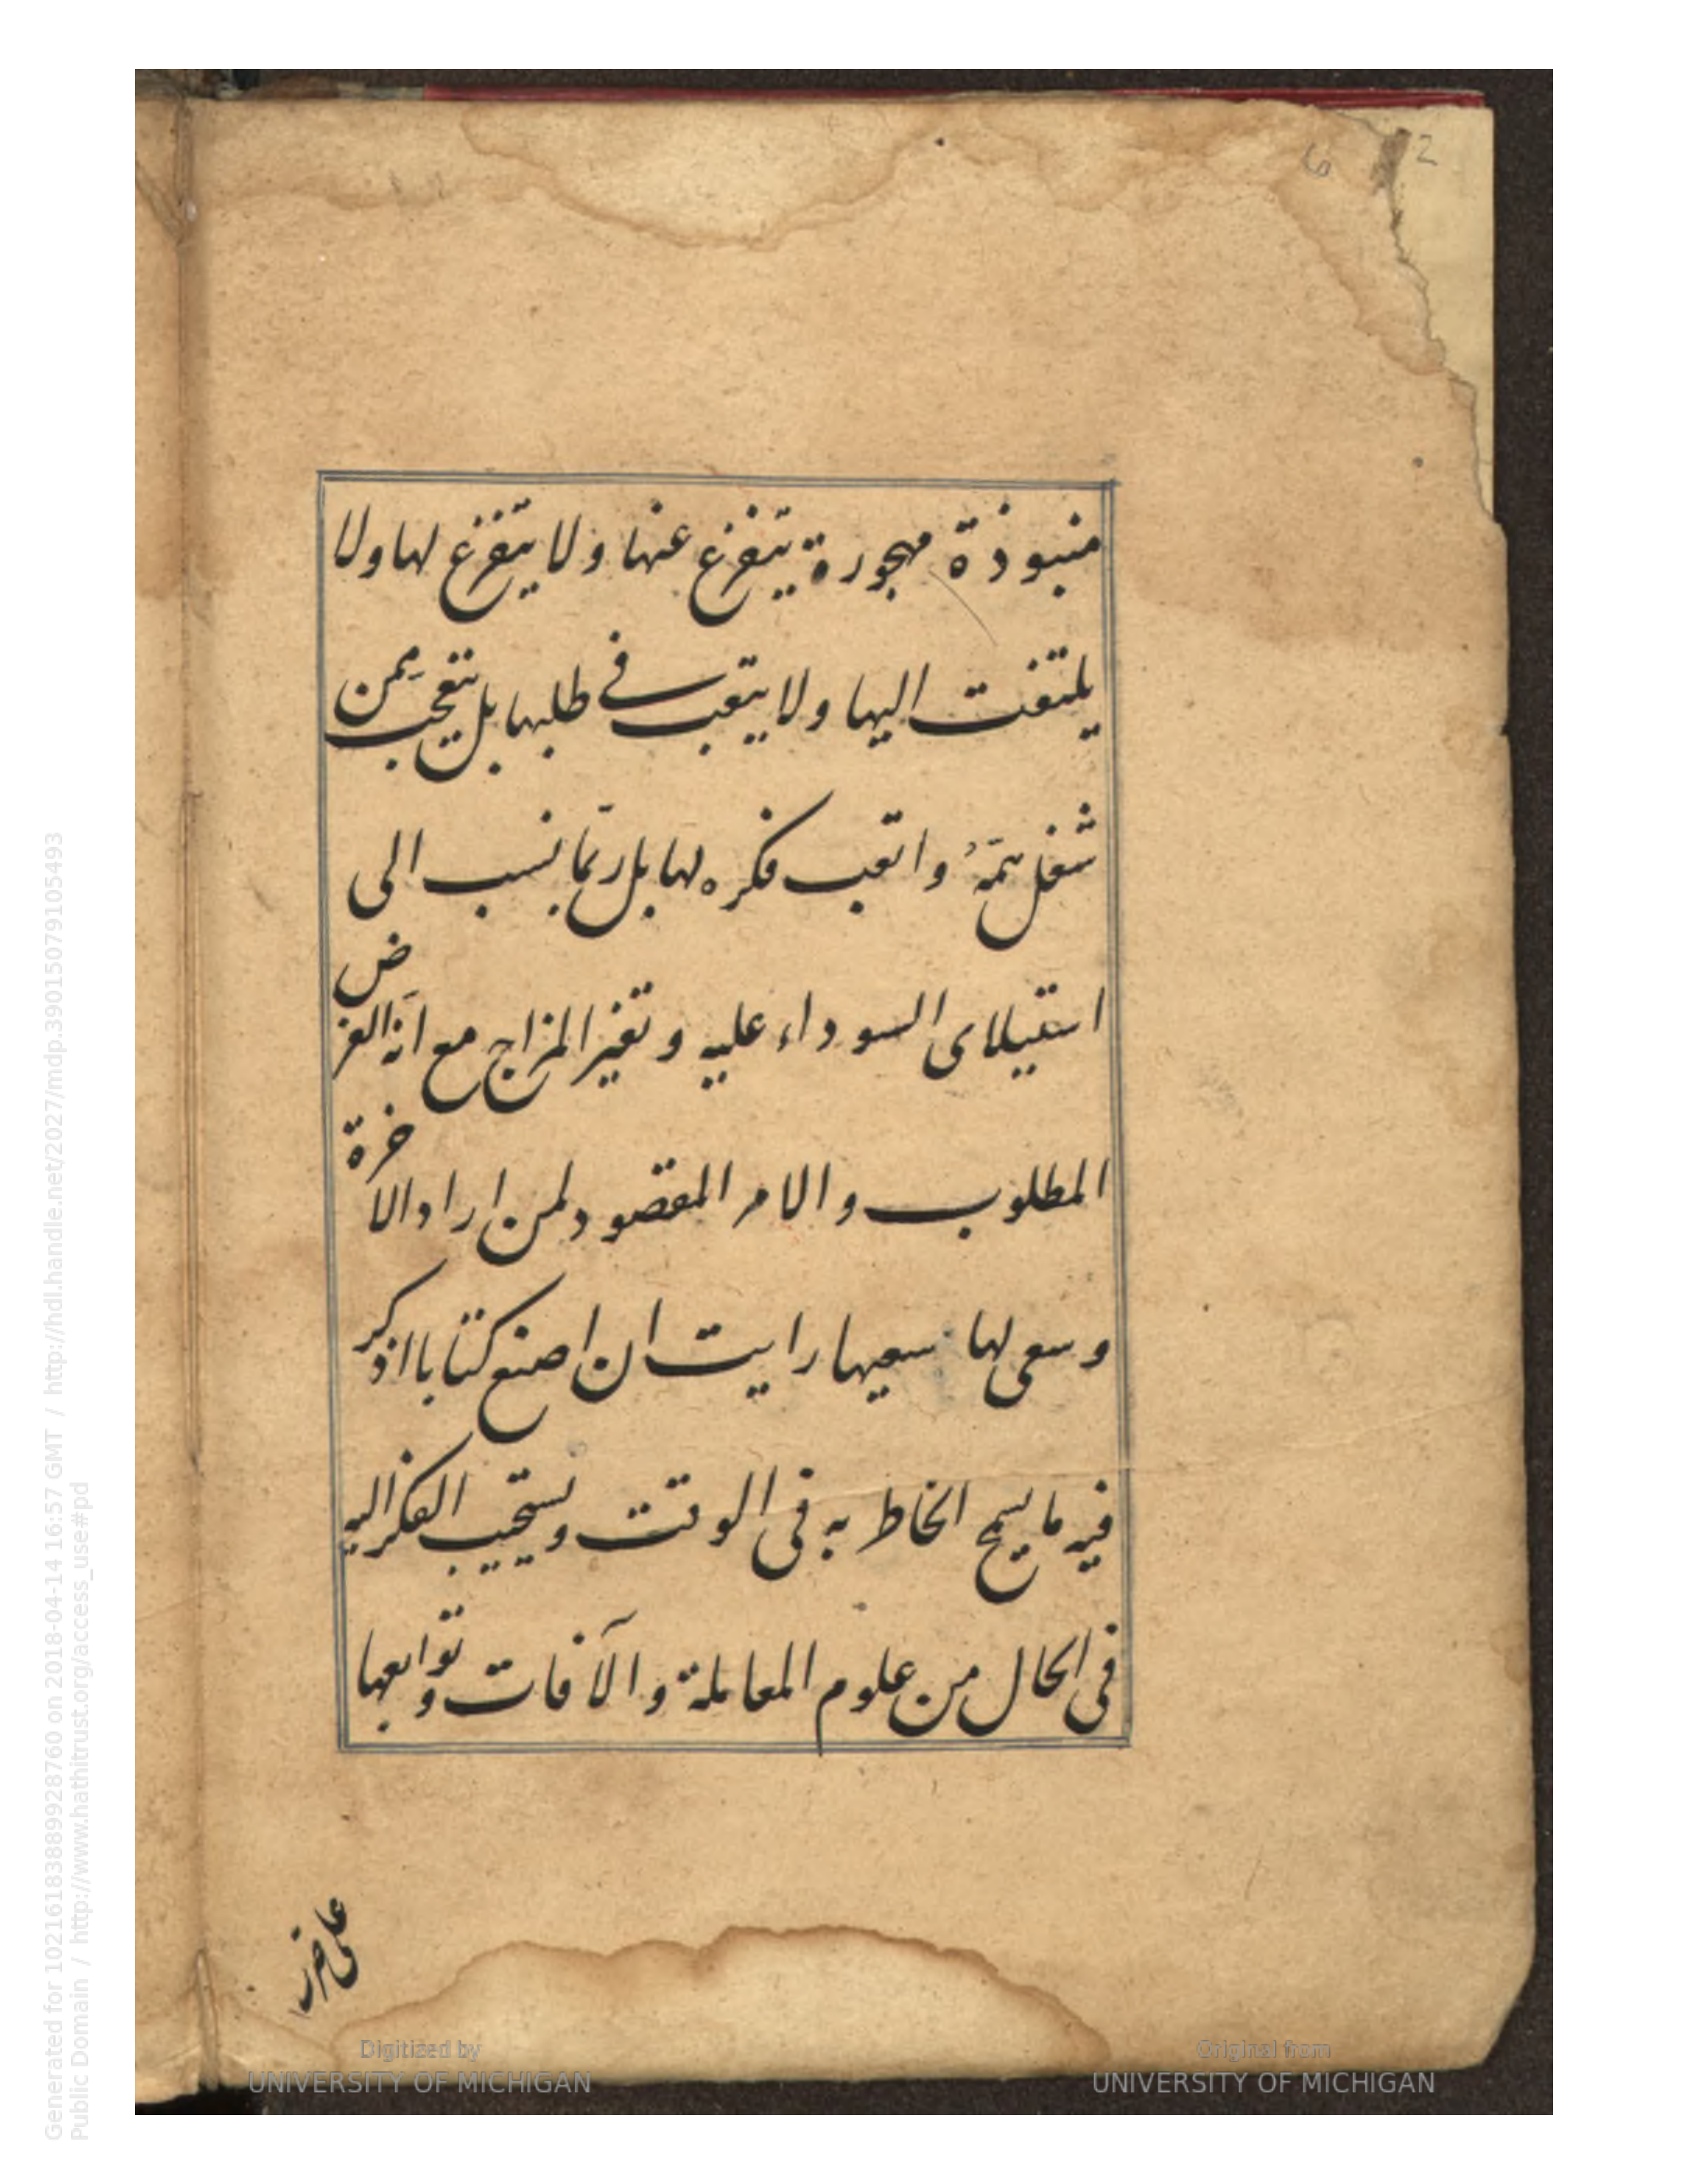 6 2
منبوذة مهجورة يتفرغ عنها ولا يتفرغ لها ولا
يلتفت اليها ولا يتعب في طلبها بل يتعجب ممن
شغل همّهُ واتعب فكره لها بل ربّما نسب الى
استيلاى السوداء عليه وتغير المزاج مع انّه الغرض
المطلوب والامر المقصود لمن اراد الاخرة
وسعى لها سعيها رايت ان اصنع كتابا اذكر
فيه ما يسمح الخاطر به فى الوقت ويستجيب الفكر اليه
فى الحال من علوم المعاملة والآفات وتوابعها
على
Digitized by
UNIVERSITY OF MICHIGAN
Original from
UNIVERSITY OF MICHIGAN
Generated for 102161838899928760 on 2018-04-14 16:57 GMT / http://hdl.handle.net/2027/mdp.39015079105493
Public Domain / http://www.hathitrust.org/access_use#pd